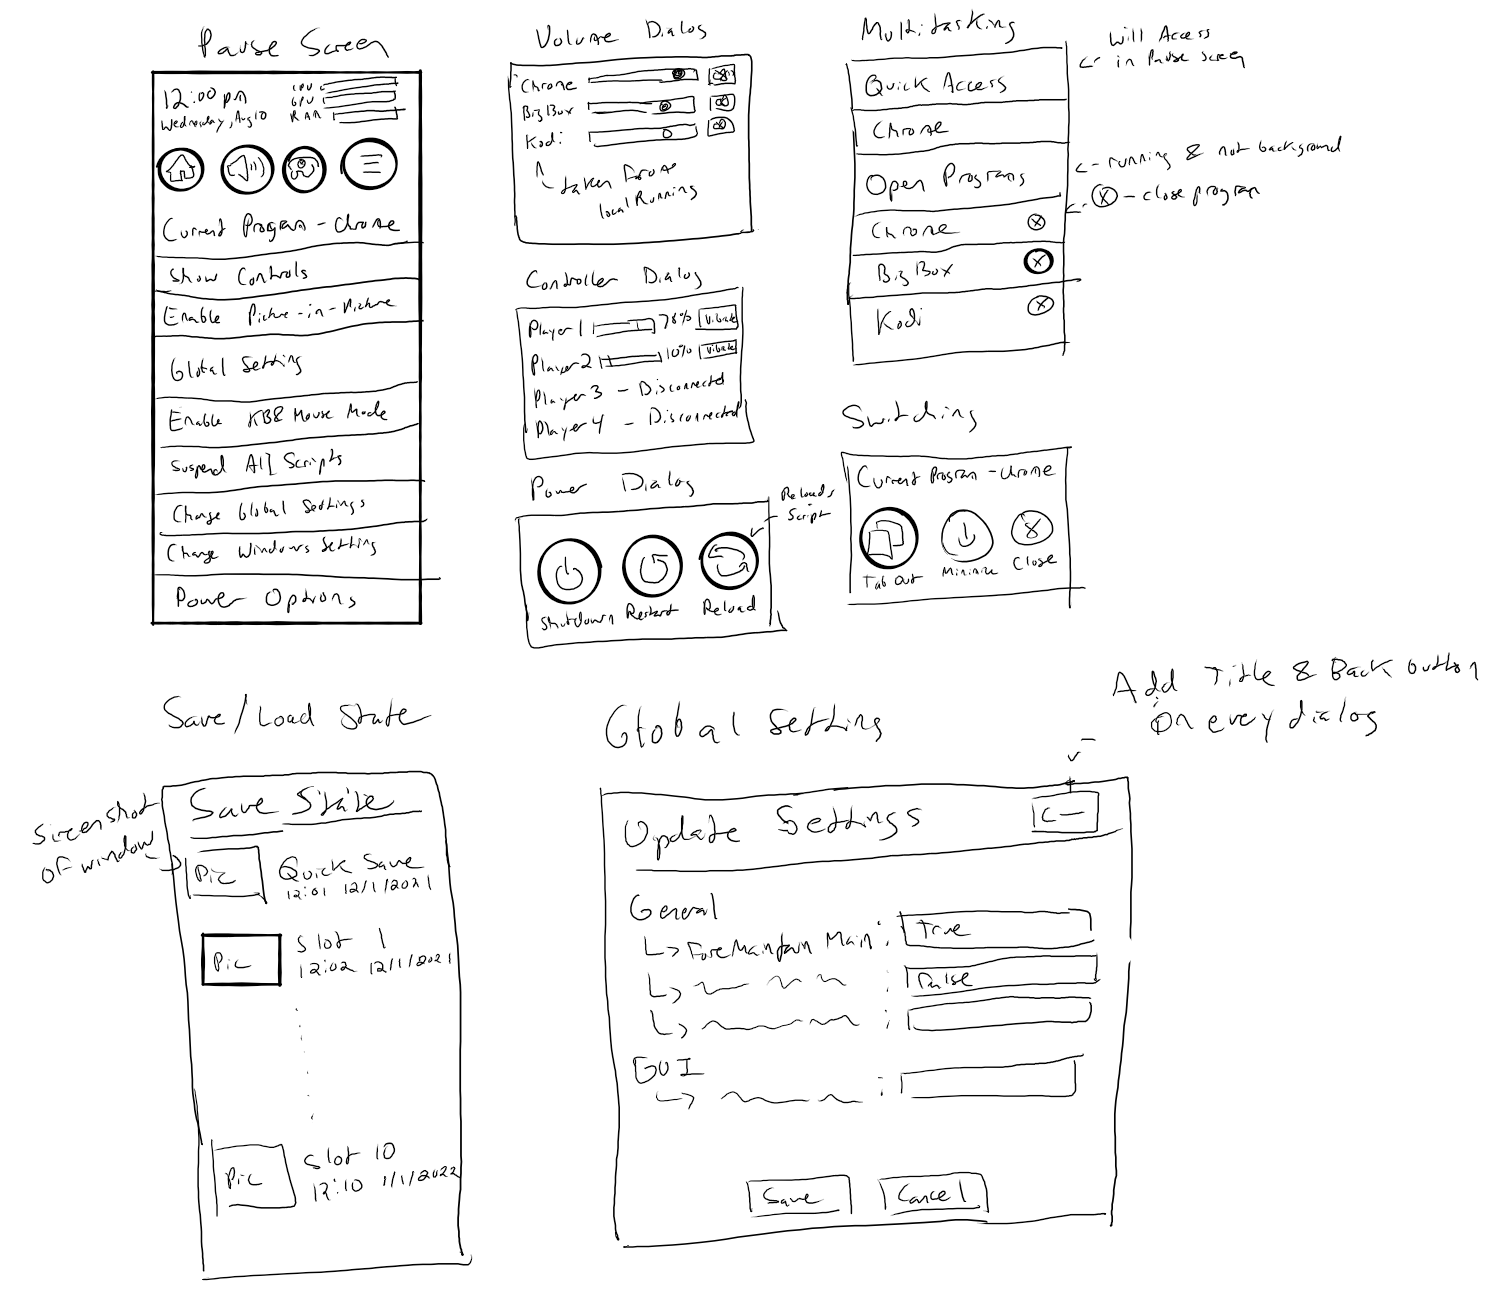 Pause Screen
12:00 pm
Wednesday, Aug 10
CPU
GPU
RAM
Current Program - Chrome
Show Controls
Enable Picture-in-Picture
Global Setting
Enable KB & Mouse Mode
Suspend All Scripts
Change Global Settings
Change Windows Setting
Power Options
Volume Dialog
Chrome
BigBox
Kodi
taken from
local Running
Controller Dialog
Player 1 78% Vibrate
Player 2 10% Vibrate
Player 3 - Disconnected
Player 4 - Disconnected
Power Dialog
Reloads
Script
Shutdown Restart Reload
Multitasking
Will Access
in Pause screen
Quick Access
Chrome
Open Programs
running & not background
X - close program
Chrome X
BigBox X
Kodi X
Switching
Current Program - Chrome
Tab Out Minimize Close
Add Title & Back button
on every dialog
Save/Load State
Screenshot
of window
Save State
Pic Quick Save
12:01 12/1/2021
Pic Slot 1
12:02 12/1/2021
Pic Slot 10
12:10 1/1/2022
Global Setting
Update Settings <-
General
ForceMaintain Main: True
: False
:
GUI
:
Save Cancel